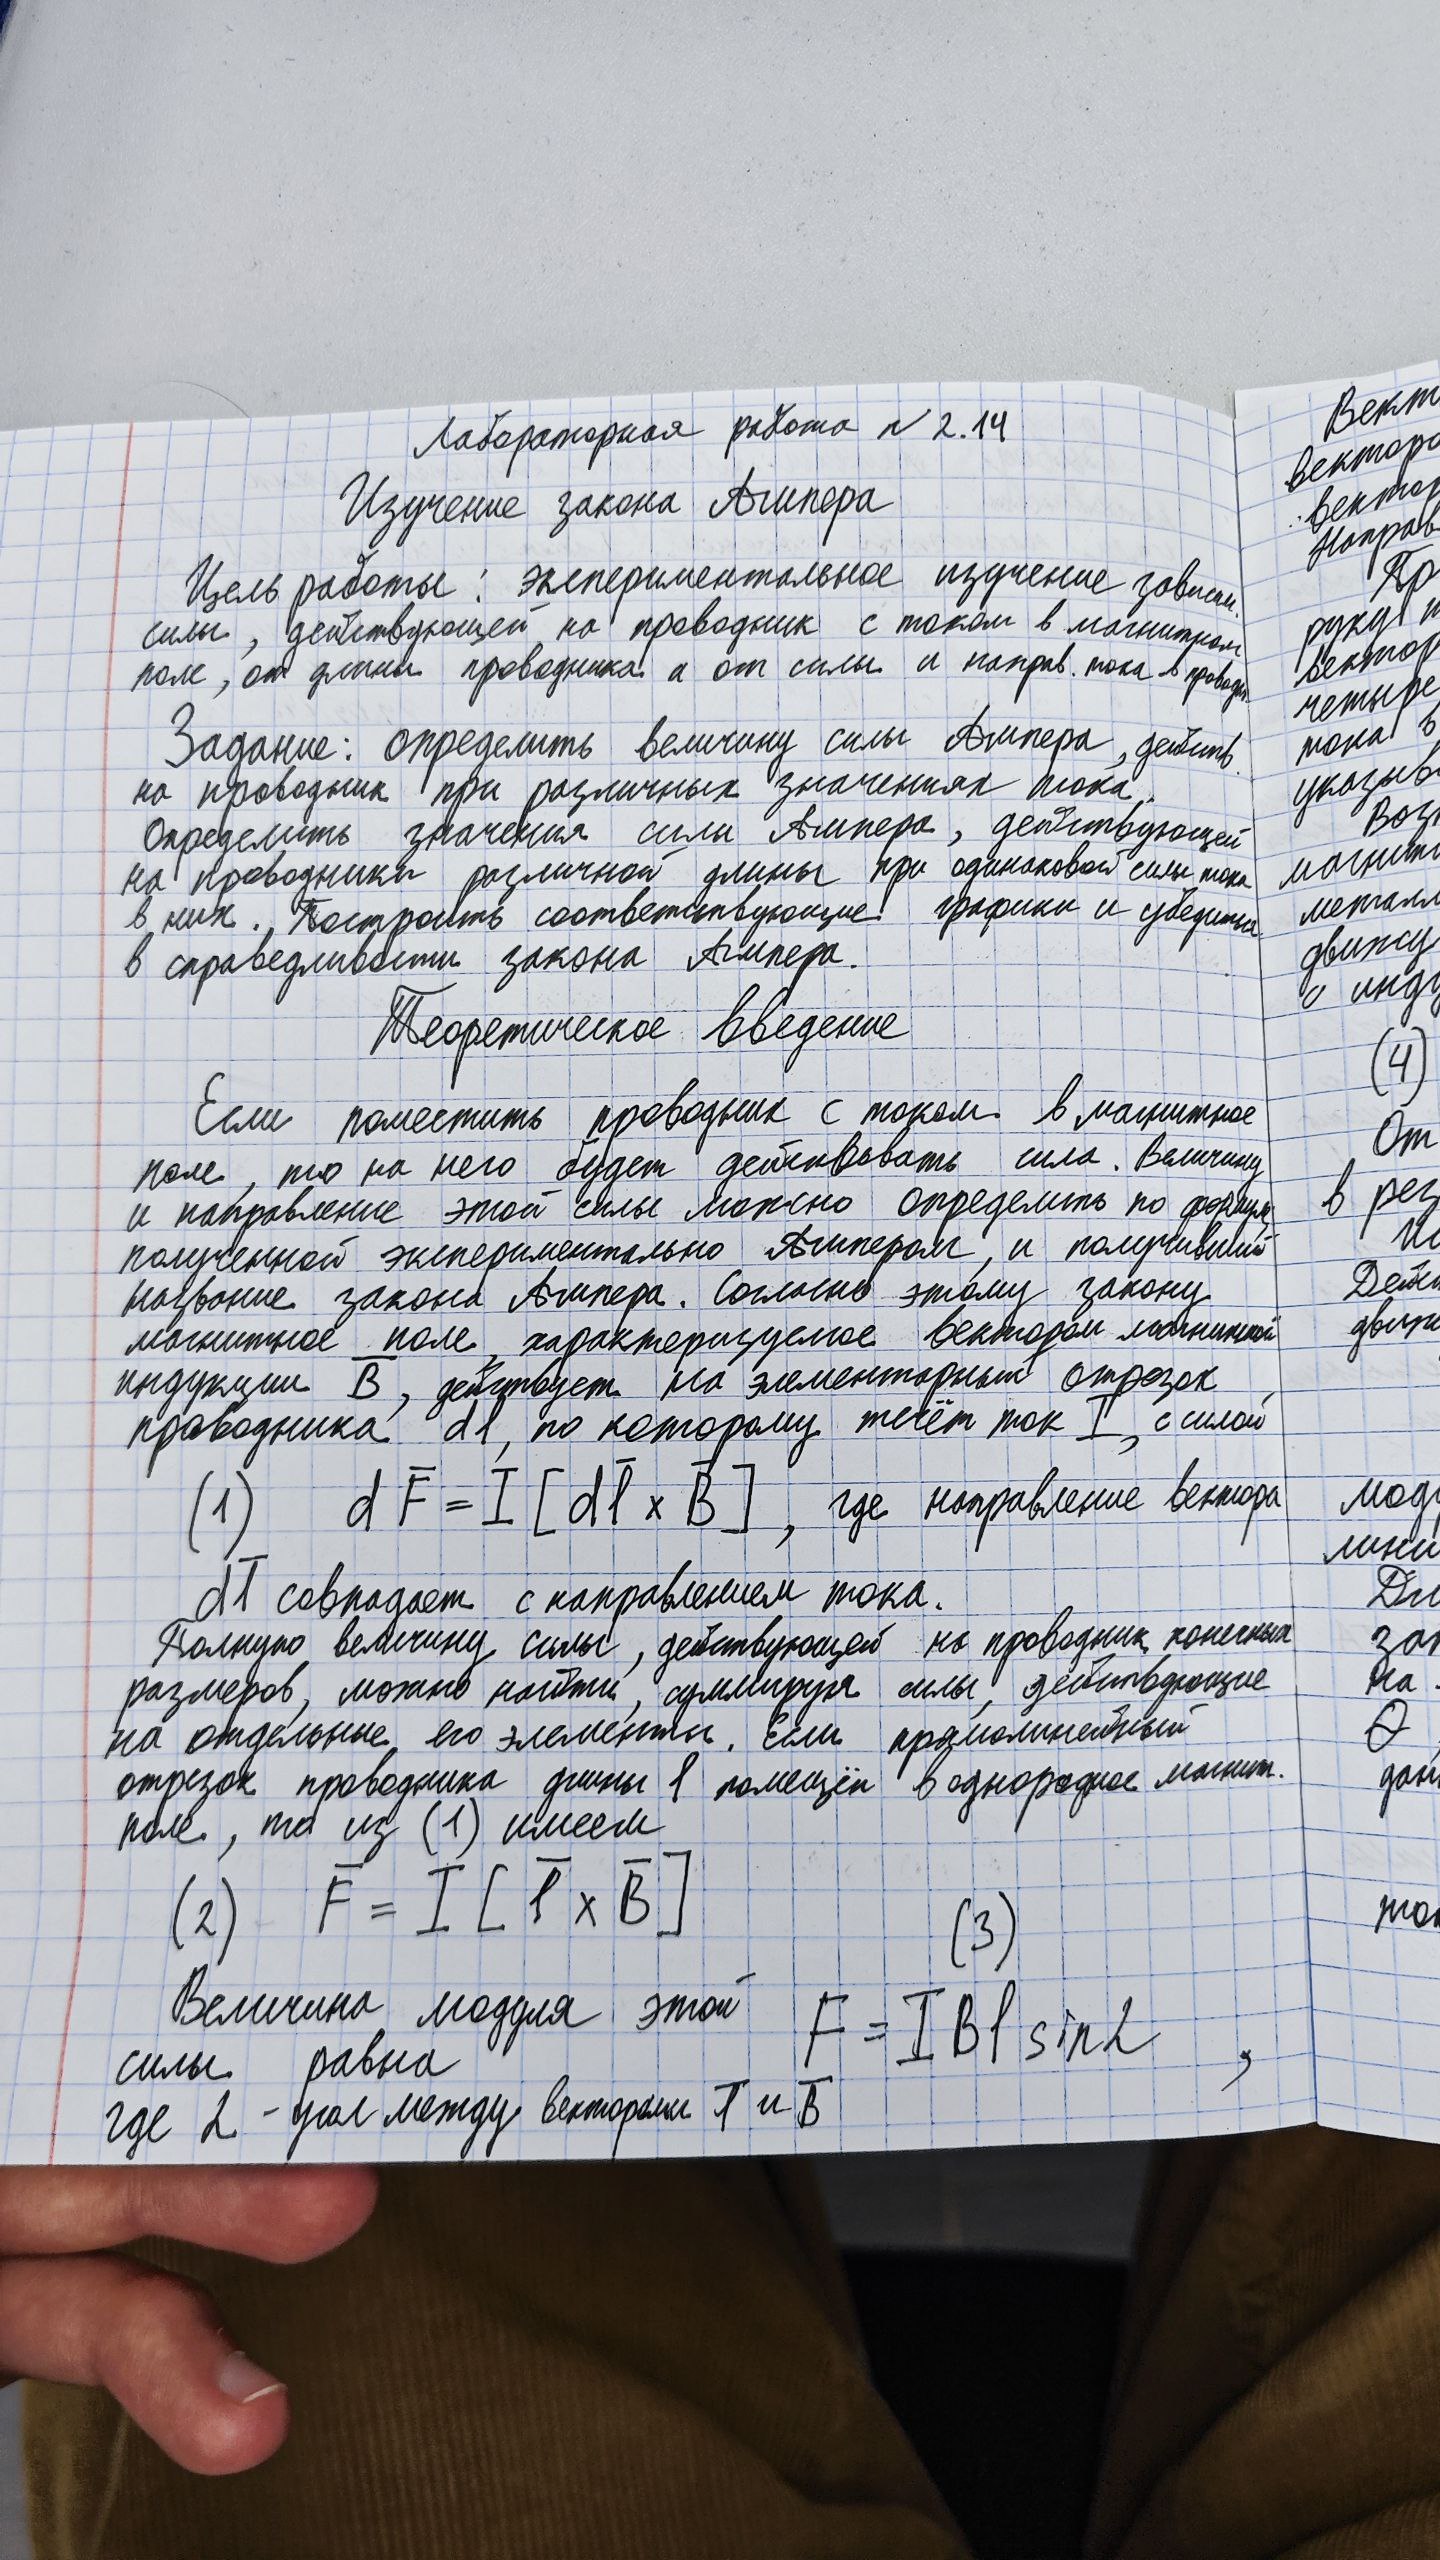 Лабораторная работа N 2.14
Изучение закона Ампера
Цель работы: экспериментальное изучение зависим.
силы, действующей на проводник с током в магнитном
поле, от длины проводника и от силы и направ. тока в проводн.
Задание: определить величину силы Ампера, действ.
на проводник при различных значениях тока.
Определить значения силы Ампера, действующей
на проводники различной длины при одинаковой силы тока
в них. Построить соответствующие графики и убедиться
в справедливости закона Ампера.
Теоретическое введение
Если поместить проводник с током в магнитное
поле, то на него будет действовать сила. Величину
и направление этой силы можно определить по формуле,
полученной экспериментально Ампером, и получивший
название закона Ампера. Согласно этому закону
магнитное поле, характеризуемое вектором магнитной
индукции B̅, действует на элементарный отрезок
проводника dl, по которому течёт ток I, с силой
(1) dF̅ = I [dl̅ × B̅], где направление вектора
dl̅ совпадает с направлением тока.
Полную величину силы, действующей на проводник конечных
размеров, можно найти, суммируя силы, действующие
на отдельные его элементы. Если прямолинейный
отрезок проводника длины l помещён в однородное магнит.
поле, то из (1) имеем
(2) F̅ = I [l̅ × B̅]
(3)
Величина модуля этой F = I B l sin α,
силы равна
где α - угол между векторами l̅ и B̅
Вект
вектора
вектор
Направ
Пр
руку
вектор
четыре
тока в
указыв
Возн
магнитн
металл
движу
с инду
(4)
От
в рез
Дейс
движ
моду
лини
зак
на
дан
ток